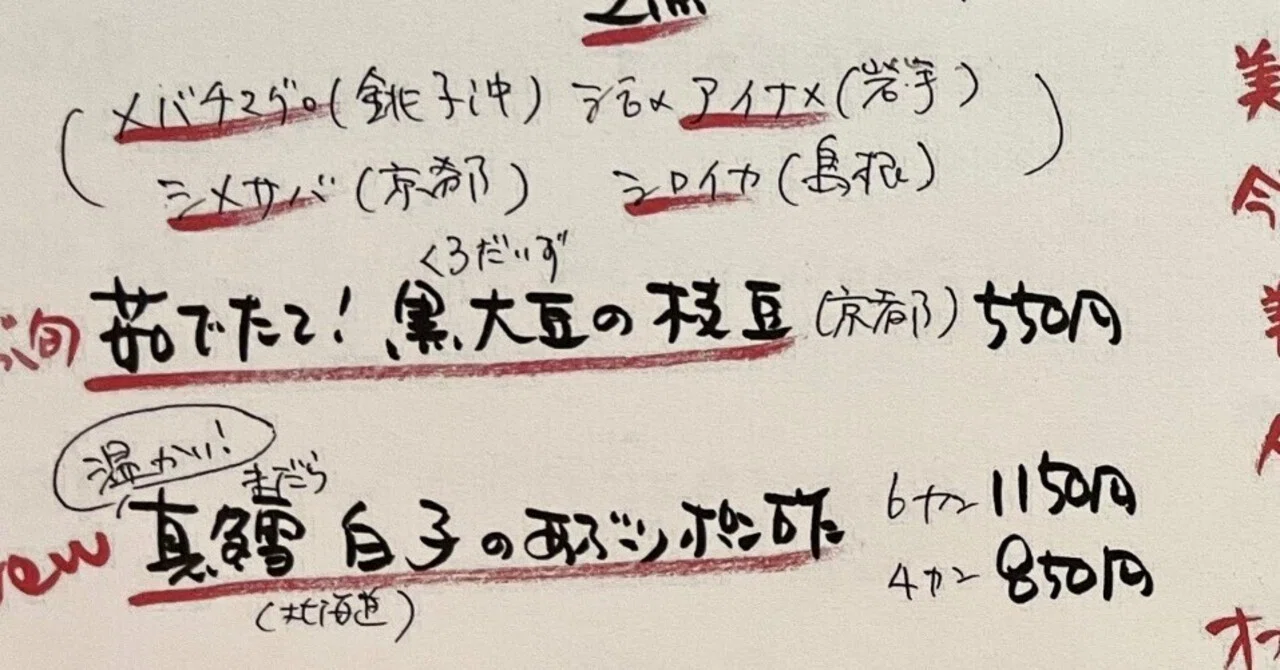 (メバチマグロ(銚子沖) 活〆アイナメ(岩手)
シメサバ(京都) シロイカ(島根))
くろだいず
旬 茹でたて!黒大豆の枝豆(京都) 550円
温かい!
まだら
new 真鱈白子のあぶりポン酢 6カン 1150円
4カン 850円
(北海道)
美
今
オ